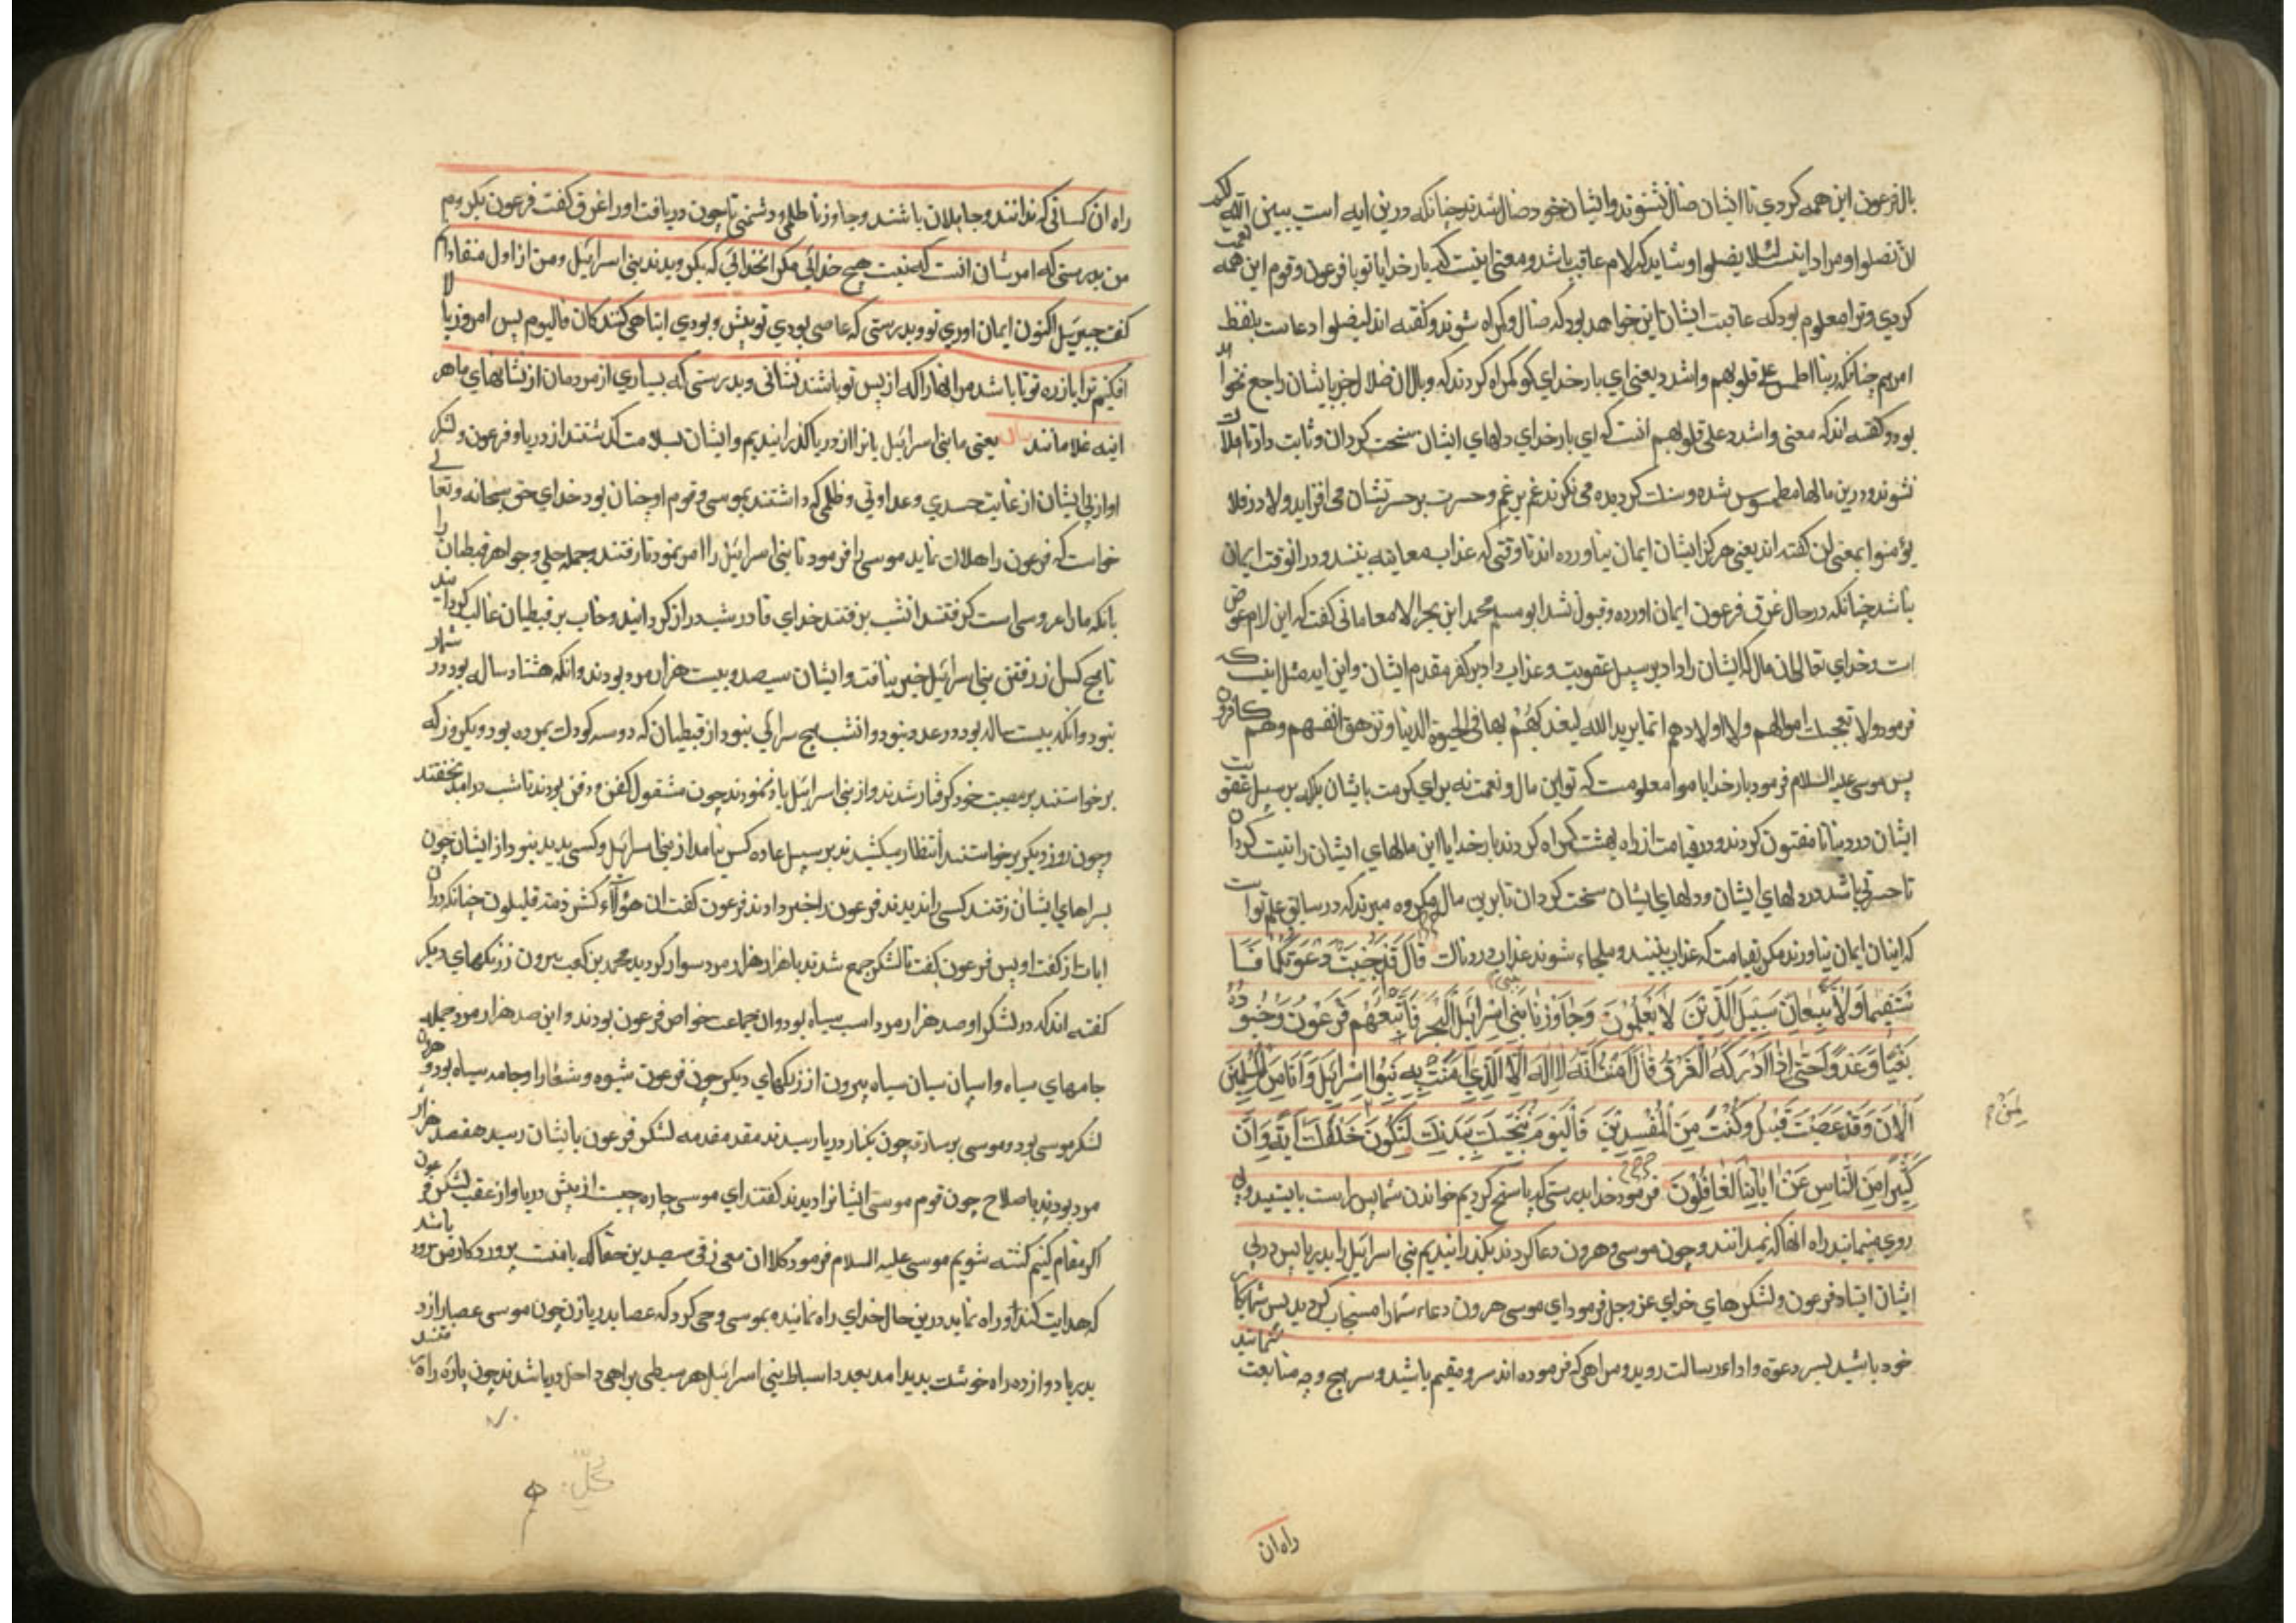 بال فرعون این همه کردی تا ایشان ضال نشوند و ایشان خود ضال شدند چنانکه درین ایه است یبین الله لکم
لأن تضلوا و مراد اینست لئلا یضلوا و شاید که لام عاقبت باشد و معنی اینست که بار خدایا تو با فرعون و قوم این همه نعمت
کردی و ترا معلوم بود که عاقبت ایشان این خواهد بود که ضال و کمراه شوند و کفته اند لیضلوا دعاست بلفظ
امر هم چنانکه ربنا اطمس علی قلوبهم واشدد یعنی ای بار خدای کو کمراه کردند که وبال ان ضلال جز بایشان راجع نخواهد
بود و کفته اند که معنی واشدد علی قلوبهم انست که ای بار خدای دلهای ایشان سخت کردان و ثابت دار تا هلاک
نشوند و درین مالها مطموس شده و سنك کردیده می نکرند غم بر غم و حسرت بر حسرتشان می افزاید ولا در فلا
یؤمنوا بمعنی لن کفته اند یعنی هرکز ایشان ایمان نیاورده اند تا وقتی که عذاب معاینه بینند و در انوقت ایمان
نباشد چنانکه در حال غرق فرعون ایمان اورده و قبول نشد ابو مسلم محمد ابن بحر الا معامانی کفت که این لام عوض
است و خدای تعالی ان مال که ایشان را داد بر سبیل عقوبت و عذاب داد بر کفر مقدم ایشان و این ایه مثل اینست که
فرمود ولا تعجبك اموالهم ولا اولادهم انما یرید الله لیعذبهم بها فی الحیوة الدنیا وتزهق انفسهم وهم کافرون
پس موسی علیه السلام فرمود بار خدایا مرا معلومست که تو این مال و نعمت نه برای کرمت بایشان بلکه بر سبیل عقوبت
ایشان در دنیا تا مفتون کردند و در قیامت از راه بهشت کمراه کردند بار خدایا این مالهای ایشان را نیست کردان
تا حسرتی باشد در دلهای ایشان و دلهای ایشان سخت کردان تا برین مال مکروه میرند که در سابق علم تو است
که اینان ایمان نیاورند مکر بقیامت که عذاب بینند و ملجاء شوند عذاب دردناك قَالَ قَدْ أُجِيبَتْ دَعْوَتُكُمَا فَا
سْتَقِيمَا وَلَا تَتَّبِعَانِّ سَبِيلَ الَّذِينَ لَا يَعْلَمُونَ وَجَاوَزْنَا بِبَنِي إِسْرَائِيلَ الْبَحْرَ فَأَتْبَعَهُمْ فِرْعَوْنُ وَجُنُودُهُ
بَغْيًا وَعَدْوًا حَتَّى إِذَا أَدْرَكَهُ الْغَرَقُ قَالَ آمَنْتُ أَنَّهُ لَا إِلَهَ إِلَّا الَّذِي آمَنَتْ بِهِ بَنُوا إِسْرَائِيلَ وَأَنَا مِنَ الْمُسْلِمِينَ
آلْآنَ وَقَدْ عَصَيْتَ قَبْلُ وَكُنْتَ مِنَ الْمُفْسِدِينَ فَالْيَوْمَ نُنَجِّيكَ بِبَدَنِكَ لِتَكُونَ لِمَنْ خَلْفَكَ آيَةً وَإِنَّ
كَثِيرًا مِنَ النَّاسِ عَنْ آيَاتِنَا لَغَافِلُونَ فرمود خدا بدرستی که پاسخ کردیم خواندن شما پس راست بایستید و پی
روی منمائید راه انها که نمیدانند و چون موسی و هرون دعا کردند بکذرانیدیم بنی اسرائیل را بدریا پس در پی
ایشان افتاد فرعون و لشکرهای خدای عز وجل فرمود ای موسی هرون دعاء شما را مستجاب کردید پس شما بکار
خود باشید بسر دعوة و اداء رسالت روید و مراهی که فرموده اند سر و مقیم باشید و سر هیچ وجه متابعت شمانید
راه ان
راه ان کسانی که ندانند و جاهلان باشند و جاوزنا ظلمی و دشمنی تا چون دریافت اورا غرق کفت فرعون بکرویدم
من بدرستی که امر شان انست که نیست هیچ خدائی مکر انخدائی که بکرویدند بنی اسرائیل و من از اول منقادانم
کفت جبرئیل اکنون ایمان اوری تو و بدرستی که عاصی بودی تو پیش و بودی از تباهی کنندکان فالیوم پس امروز بالا
افکنیم ترا با زره تو تا باشد مر انها را که از پس تو باشند نشانی و بدرستی که بسیاری از مردمان از نشانهای ما هر
اینه غلامانند یعنی ما بنی اسرائیل یانرا از دریا کذرانیدیم و ایشان بسلامت کذشتند از دریا و فرعون و لشکر
او از پی ایشان از غایت حسدی و عداوتی و ظلمی که داشتند بموسی و قوم او چنان بود خدای حق سبحانه وتعالی
خواست که فرعون را هلاك نماید موسی را فرمود تا بنی اسرائیل را امر نمود تا رفتند و جمله حلی و جواهر قبطیان را
بانکه ما را عروسی است کرفتند انشب برفتند خدای قادر شب دراز کردانید و خواب بر قبطیان غالب کردانید
تا هیچ کس از رفتن بنی اسرائیل خبر نیافت و ایشان سیصد و بیست هزار مرد بودند و انکه هشتاد ساله بود در شمار
نبود و انکه بیست ساله بود در عدد نبود و انشب هیچ سرائی نبود از قبطیان که دو سه کودك نمرده بود و یکروز که
برخواستند بر مصیبت خود کرفتار شدند و از بنی اسرائیل یاد ننمودند چون مشغول کفن و دفن بودند تا شب درامد بخفتند
و چون روز دیکر برخواستند انتظار میکشیدند بر سبیل عاده کس نیامد از بنی اسرائیل و کسی پدید نبود از ایشان چون
بسراهای ایشان رفتند کسی را ندیدند فرعون را خبر دادند فرعون کفت ان هؤلاء لشرذمة قلیلون چنانکه در ان
ایات از کفت او پس فرعون بکفت تا لشکر جمع شدند با هزار هزار مرد سوار کردید محمد بن کعب بیرون ز رنکهای دیکر
کفته اند که در لشکر او صد هزار مرد اسب سیاه بود و ان جماعت خواص فرعون بودند و این صد هزار مرد جمله
جامهای سیاه و اسپان سیان سیاه بیرون از رنکهای دیکر چون فرعون شیوه و شعار او جامه سیاه بود و هرون
لشکر موسی بود و موسی بر ساقه چون بکنار دریا رسیدند مقدمه لشکر فرعون بایشان رسید هفصد هزار
مرد بودند با صلاح چون قوم موسی ایشانرا دیدند کفتند ای موسی چاره چیست از پیش دریا و از عقب لشکر فرعون
اکر مقام کنیم کشته شویم موسی علیه السلام فرمود کلا ان معی ربی سیهدین حقا که با منست پروردکار من زود باشد
که هدایت کند و راه نماید درین حال خدای راه نماینده بموسی وحی کرد که عصا بدریا زن چون موسی عصا را زد
بدریا دوازده راه خوشت پدید امد بعدد اسباط بنی اسرائیل هر سبطی براهی داخل دریا شدند چون پاره راه رفتند